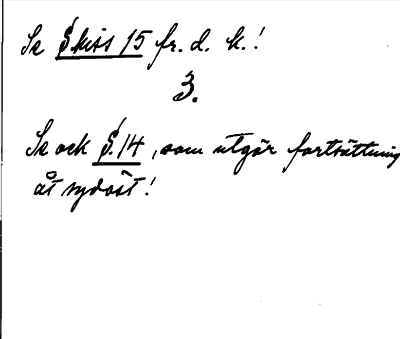 Se Skiss 15 fr. d. k.!
3.
Se ock S. 14, som utgör fortsättning
åt sydöst!